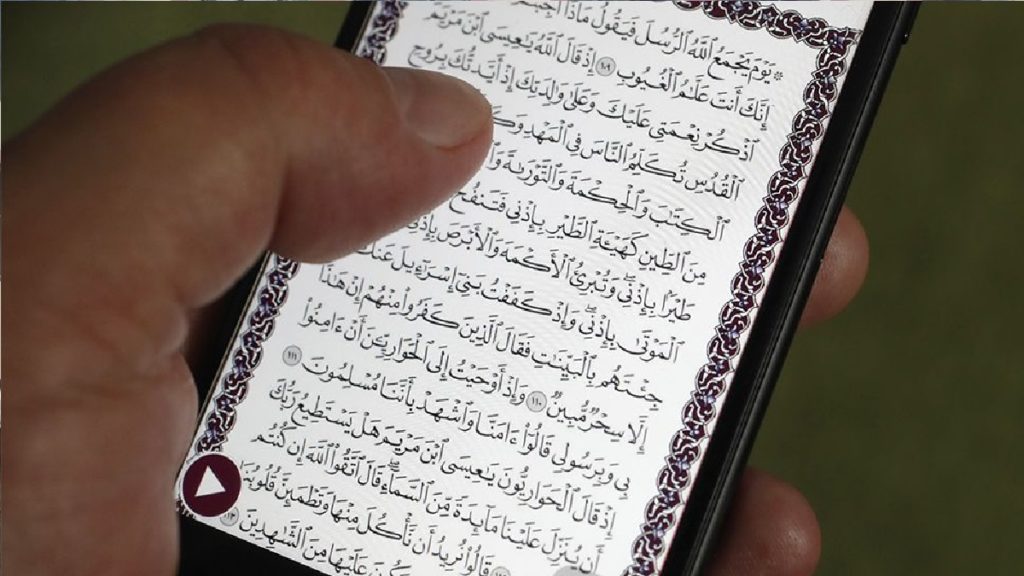 ۞ يَوْمَ يَجْمَعُ ٱللَّهُ ٱلرُّسُلَ فَيَقُولُ مَاذَآ أُجِبْتُمْ
إِنَّكَ أَنتَ عَلَّٰمُ ٱلْغُيُوبِ ١٠٩ إِذْ قَالَ ٱللَّهُ يَٰعِيسَى ٱبْنَ مَرْيَمَ
ٱذْكُرْ نِعْمَتِى عَلَيْكَ وَعَلَىٰ وَٰلِدَتِكَ إِذْ أَيَّدتُّكَ بِرُوحِ
ٱلْقُدُسِ تُكَلِّمُ ٱلنَّاسَ فِى ٱلْمَهْدِ
ٱلْكِتَٰبَ وَٱلْحِكْمَةَ وَٱلتَّوْرَىٰةَ
مِنَ ٱلطِّينِ كَهَيْـَٔةِ ٱلطَّيْرِ بِإِذْنِى فَتَنفُخُ
طَيْرًۢا بِإِذْنِى وَتُبْرِئُ ٱلْأَكْمَهَ وَٱلْأَبْرَصَ
ٱلْمَوْتَىٰ بِإِذْنِى وَإِذْ كَفَفْتُ بَنِىٓ إِسْرَٰٓءِيلَ عَنكَ
جِئْتَهُم بِٱلْبَيِّنَٰتِ فَقَالَ ٱلَّذِينَ كَفَرُوا۟ مِنْهُمْ إِنْ هَٰذَآ
إِلَّا سِحْرٌ مُّبِينٌ ١١٠ وَإِذْ أَوْحَيْتُ إِلَى ٱلْحَوَارِيِّۦنَ أَنْ ءَامِنُوا۟
بِى وَبِرَسُولِى قَالُوٓا۟ ءَامَنَّا وَٱشْهَدْ بِأَنَّنَا مُسْلِمُونَ ١١١
إِذْ قَالَ ٱلْحَوَارِيُّونَ يَٰعِيسَى ٱبْنَ مَرْيَمَ هَلْ يَسْتَطِيعُ رَبُّكَ
أَن يُنَزِّلَ عَلَيْنَا مَآئِدَةً مِّنَ ٱلسَّمَآءِ قَالَ ٱتَّقُوا۟ ٱللَّهَ إِن كُنتُم
قَالُوا۟ نُرِيدُ أَن نَّأْكُلَ مِنْهَا وَتَطْمَئِنَّ قُلُوبُنَا
عَلَيْهَا مِنَ ٱلشَّٰهِدِينَ